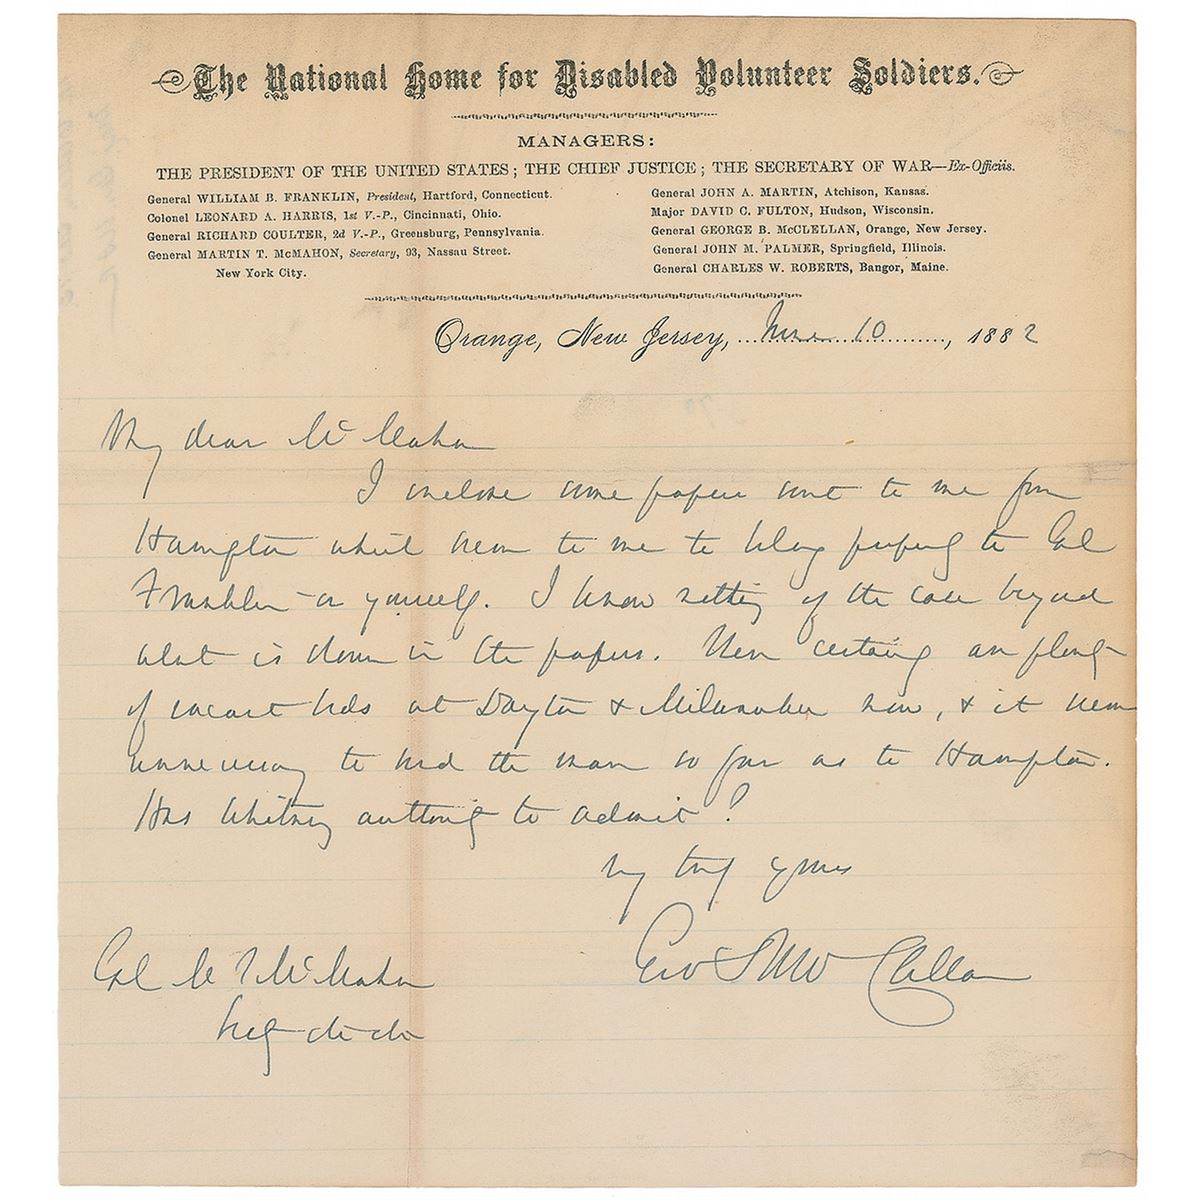 The National Home for Disabled Volunteer Soldiers.
MANAGERS:
THE PRESIDENT OF THE UNITED STATES; THE CHIEF JUSTICE; THE SECRETARY OF WAR—Ex-Officiis.
General WILLIAM B. FRANKLIN, President, Hartford, Connecticut.
Colonel LEONARD A. HARRIS, 1st V.-P., Cincinnati, Ohio.
General RICHARD COULTER, 2d V.-P., Greensburg, Pennsylvania.
General MARTIN T. McMAHON, Secretary, 93, Nassau Street.
New York City.
General JOHN A. MARTIN, Atchison, Kansas.
Major DAVID C. FULTON, Hudson, Wisconsin.
General GEORGE B. McCLELLAN, Orange, New Jersey.
General JOHN M. PALMER, Springfield, Illinois.
General CHARLES W. ROBERTS, Bangor, Maine.
Orange, New Jersey, 10, 1882
My dear McMahon
I enclose some papers sent to me from
Hampton which seem to me to belong properly to Genl
Franklin or yourself. I know nothing of the case beyond
what is down in the papers. There certainly are plenty
of vacant beds at Dayton & Milwaukee now, & it seems
unnecessary to send the man so far as to Hampton.
Has Whitney authority to admit?
Very truly yours
Geo B McClellan
Genl M T McMahon